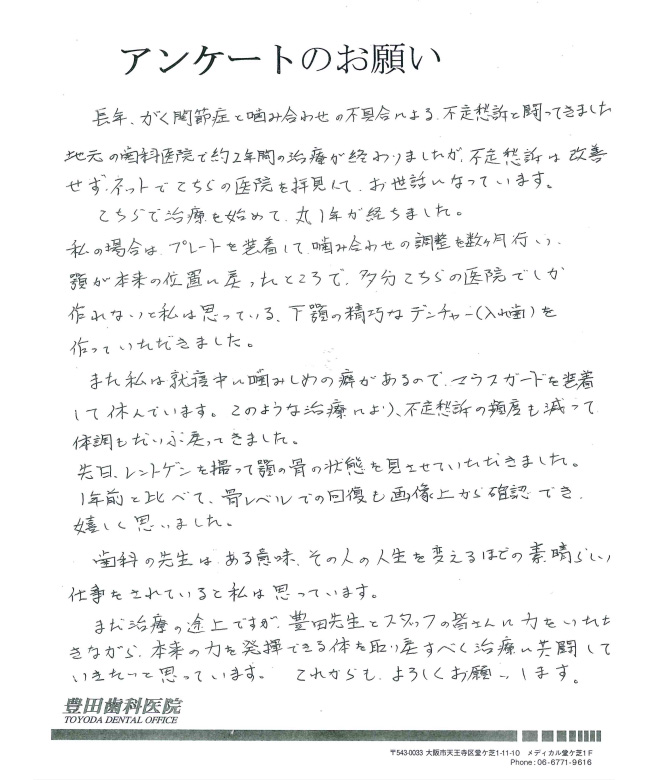 アンケートのお願い
長年、がく関節症と噛み合わせの不具合による、不定愁訴と闘ってきました
地元の歯科医院で約2年間の治療が終わりましたが、不定愁訴は改善
せず、ネットでこちらの医院を拝見して、お世話になっています。
こちらで治療を始めて、丸1年が経ちました。
私の場合は、プレートを装着して、噛み合わせの調整を数ヶ月行い、
顎が本来の位置に戻ったところで、多分こちらの医院でしか
作れないと私は思っている、下顎の精巧なデンチャー(入れ歯)を
作っていただきました。
また私は就寝中に噛みしめの癖があるので、マウスガードを装着
して休んでいます。このような治療により、不定愁訴の頻度も減って
体調もだいぶ戻ってきました。
先日、レントゲンを撮って顎の骨の状態を見させていただきました。
1年前と比べて、骨レベルでの回復も画像上から確認でき、
嬉しく思いました。
歯科の先生は、ある意味、その人の人生を変えるほどの素晴らしい
仕事をされていると私は思っています。
まだ治療の途上ですが、豊田先生とスタッフの皆さんに力をいただ
きながら、本来の力を発揮できる体を取り戻すべく治療に共闘して
いきたいと思っています。 これからも、よろしくお願いします。
豊田歯科医院
TOYODA DENTAL OFFICE
〒543-0033 大阪市天王寺区堂ケ芝1-11-10 メディカル堂ケ芝1F
Phone:06-6771-9616